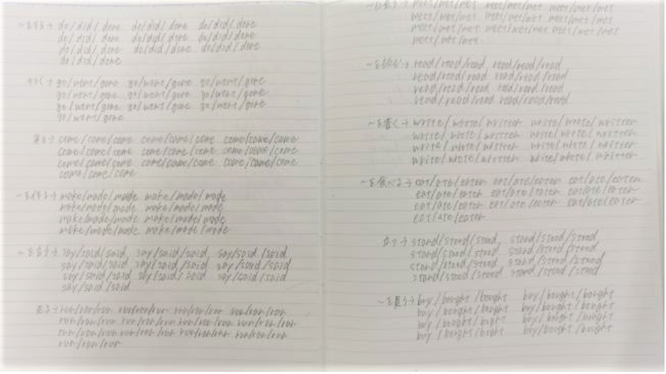 ~をする→ do/did/done do/did/done
do/did/done do/did/done do/did/done
do/did/done do/did/done do/did/done
do/did/done do/did/done
行く→ go/went/gone go/went/gone go/went/gone
go/went/gone go/went/gone go/went/gone
go/went/gone go/went/gone go/went/gone
go/went/gone
come/come/come come/come/come come/come/come
come/come/come come/come/come come/come/come
come/come/come come/come/come come/come/come
come/come/come
~を作る→ make/made/made make/made/made
make/made/made make/made/made
make/made/made make/made/made
make/made/made make/made/made
~を言う→ say/said/said, say/said/said, say/said/said
say/said/said say/said/said say/said/said
say/said/said say/said/said say/said/said
say/said/said
走る→ run/run/run run/run/run run/run/run run/run/run
run/run/run run/run/run run/run/run run/run/run
run/run/run run/run/run run/run/run run/run/run
run/run/run
meet/met/met meet/met/met meet/met/met
meet/met/met meet/met/met meet/met/met
meet/met/met
~を読む→ read/read/read read/read/read
read/read/read read/read/read
read/read/read read/read/read
read/read/read read/read/read
~を書く→ write/wrote/written write/wrote/written
write/wrote/written write/wrote/written
write/wrote/written write/wrote/written
write/wrote/written write/wrote/written
~を食べる→ eat/ate/eaten eat/ate/eaten eat/ate/eaten
eat/ate/eaten eat/ate/eaten eat/ate/eaten
eat/ate/eaten eat/ate/eaten eat/ate/eaten
eat/ate/eaten
立つ→ stand/stand/stand, stand/stand/stand
stand/stand/stand stand/stand/stand
stand/stand/stand stand/stand/stand
stand/stand/stand stand/stand/stand
~を買う→ buy/bought/bought buy/bought/bought
buy/bought/bought buy/bought/bought
buy/bought/bought buy/bought/bought
buy/bought/bought buy/bought/bought